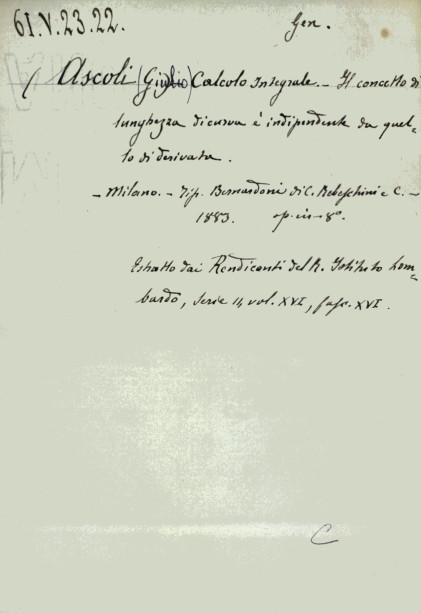 61.V.23.22.
Gen.
Ascoli (Giulio) Calcolo Integrale. - Il concetto di
lunghezza di curva è indipendente da quel-
lo di derivata.
- Milano. - Tip. Bernardoni di C. Rebeschini e C. -
1883. op. in-8°.
Estratto dai Rendiconti del R. Istituto Lom-
bardo, Serie II, vol. XVI, fasc. XVI.
C